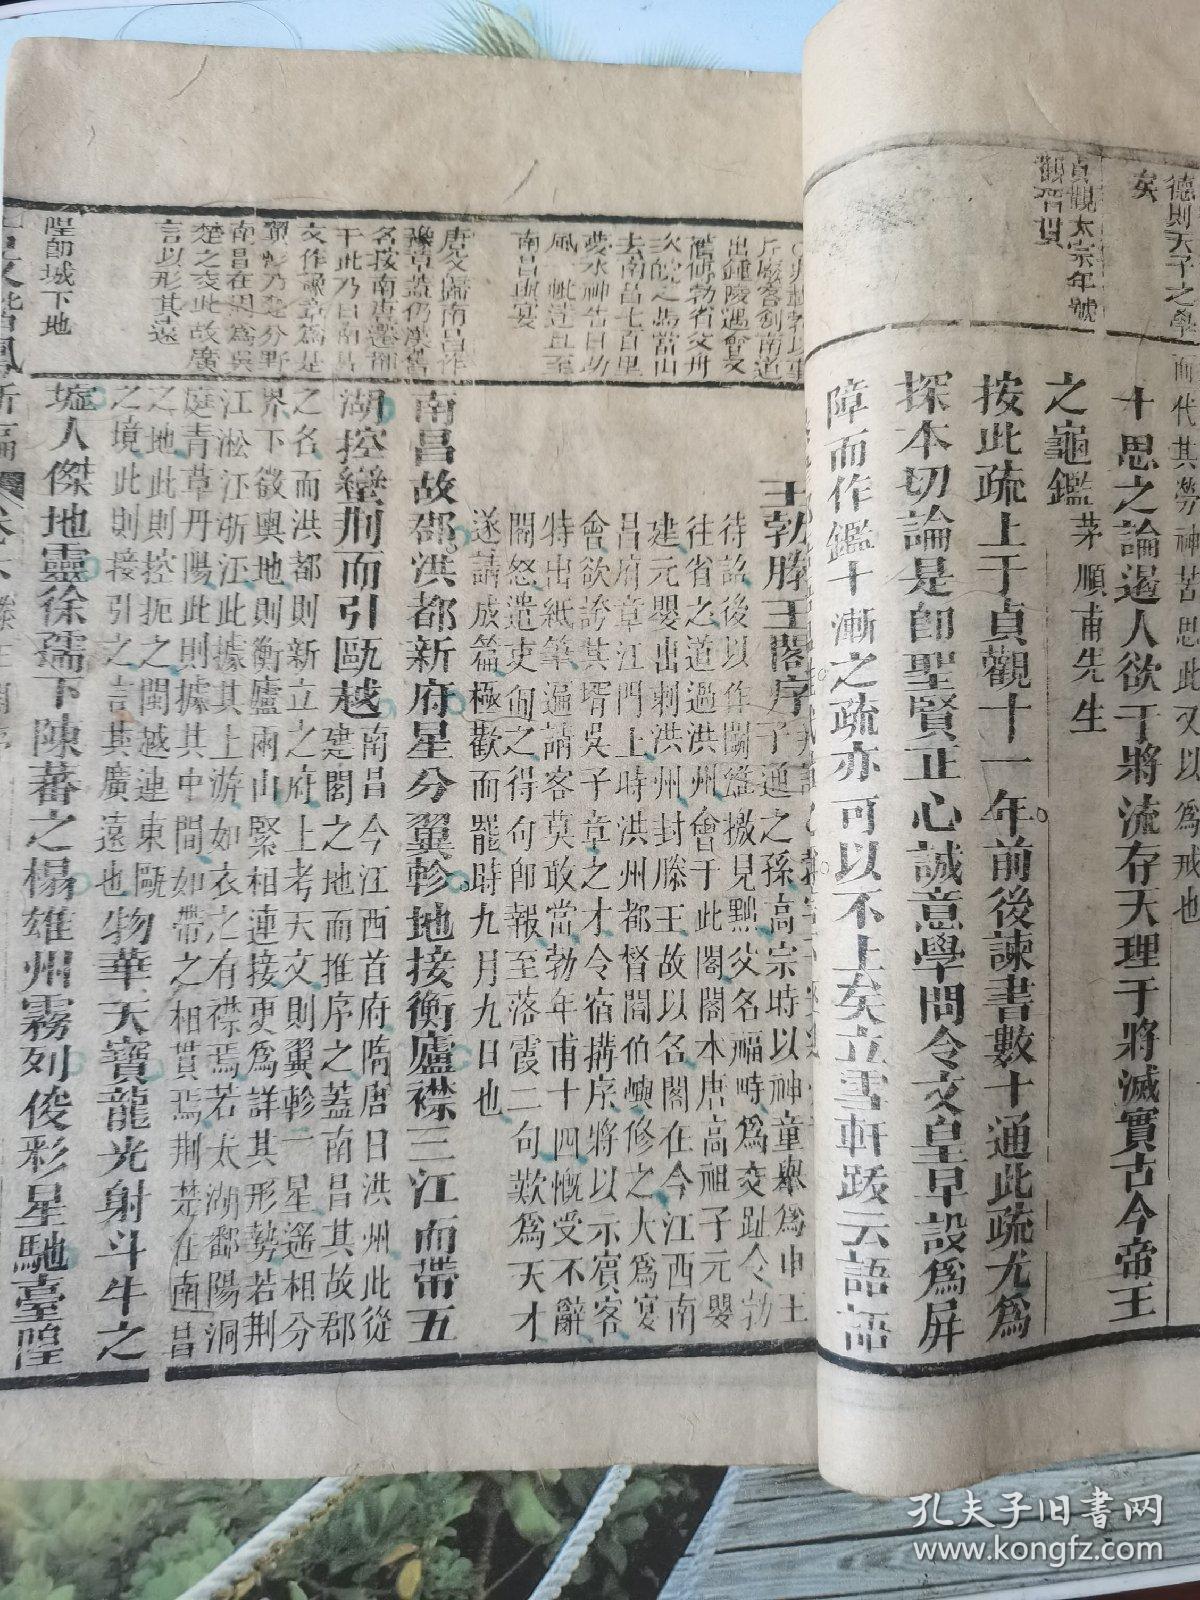 德則天子之學
矣
貞觀太宗年號
而代其勞神苦思此又以爲戒也
十思之論遏人欲于將流存天理于將滅實古今帝王
之龜鑑
茅順甫先生
按此疏上于貞觀十一年前後諫書數十通此疏尤爲
探本切論是卽聖賢正心誠意學問令文皇早設爲屏
障而作鑑十漸之疏亦可以不上矣立雪軒跋云語語
去南昌七百里
南昌與宴
唐文歸南昌作
豫章蓋仍漢舊
文作豫章爲是
翼軫乃楚分野
南昌在因爲吳
楚之交此故廣
言以形其遠
隍卽城下地
王勃滕王閣序
子通之孫高宗時以神童舉爲
待詔後以作鬭雞檄見黜父名福畤爲交趾令勃
往省之道過洪州會于此閣閣本唐高祖子元嬰
建元嬰出刺洪州封滕王故以名閣在今江西南
昌府章江門上時洪州都督閻伯嶼修之大爲宴
會欲誇其壻吳子章之才令宿搆序將以示賓客
特出紙筆遍請客莫敢當勃年甫十四慨受不辭
閻怒遣吏伺之得句卽報至落霞二句歎爲天才
遂請成篇極歡而罷時九月九日也
南昌故郡洪都新府星分翼軫地接衡廬襟三江而帶五
湖控蠻荆而引甌越
南昌今江西首府隋唐曰洪州此從
建閣之地而推序之蓋南昌其故郡
之名而洪都則新立之府上考天文則翼軫二星遥相分
界下徵輿地則衡廬兩山緊相連接更爲詳其形勢若荆
江淞江浙江此據其上游如衣之有襟焉若太湖鄱陽洞
庭青草丹陽此則據其中間如帶之相貫焉荆楚在南昌
之地此則控扼之閩越連東甌
之境此則接引之言其廣遠也
物華天寶龍光射斗牛之
墟人傑地靈徐孺下陳蕃之榻雄州霧列俊彩星馳臺隍
孔夫子旧书网
www.kongfz.com